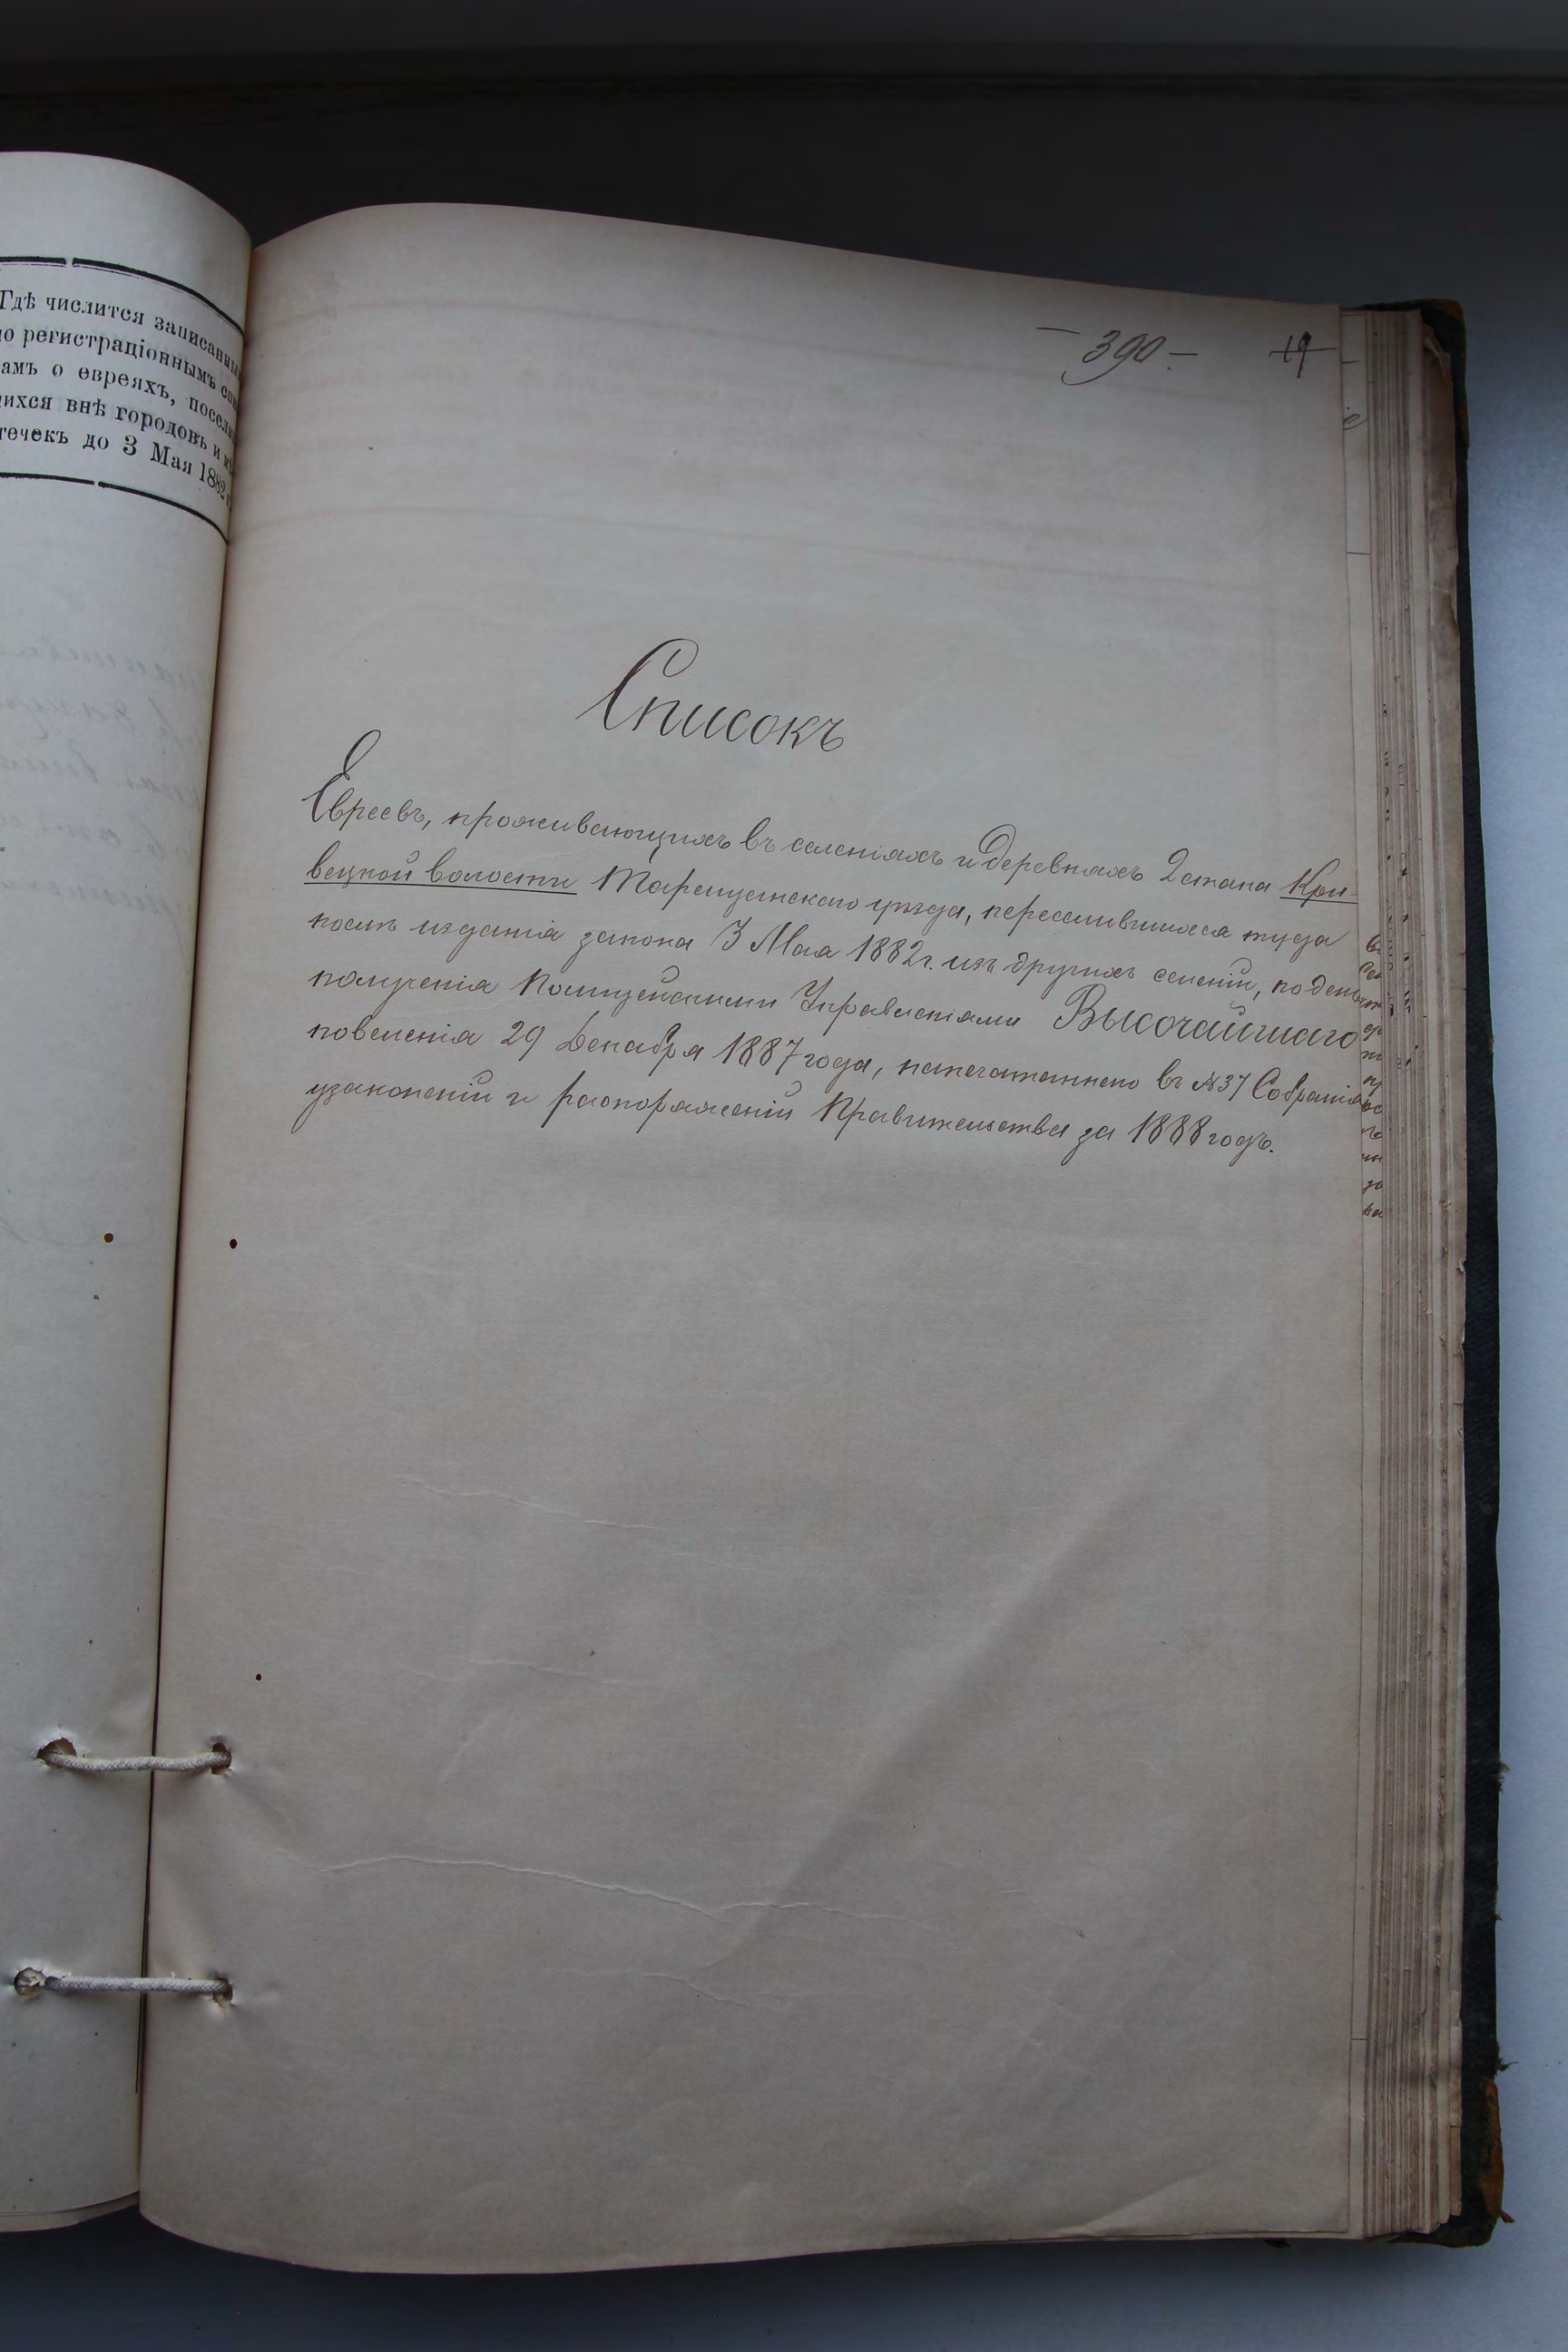 Гдѣ числится записанны
о регистраціоннымъ спи
амъ о евреяхъ, посели
ихся внѣ городовъ и мѣ
течекъ до 3 Мая 1882 г
— 390. — 19
Списокъ
Евреевъ, проживающихъ въ селеніяхъ и деревняхъ 2 стана Кри-
вецкой волости Таращанскаго уѣзда, переселившихся туда
послѣ изданія закона 3 Мая 1882 г. изъ другихъ селеній, по день
полученія Полицейскими Управленіями Высочайшаго
повеленія 29 Декабря 1887 года, напечатаннаго въ №37 Собранія
узаконеній и распоряженій Правительства за 1888 годъ.